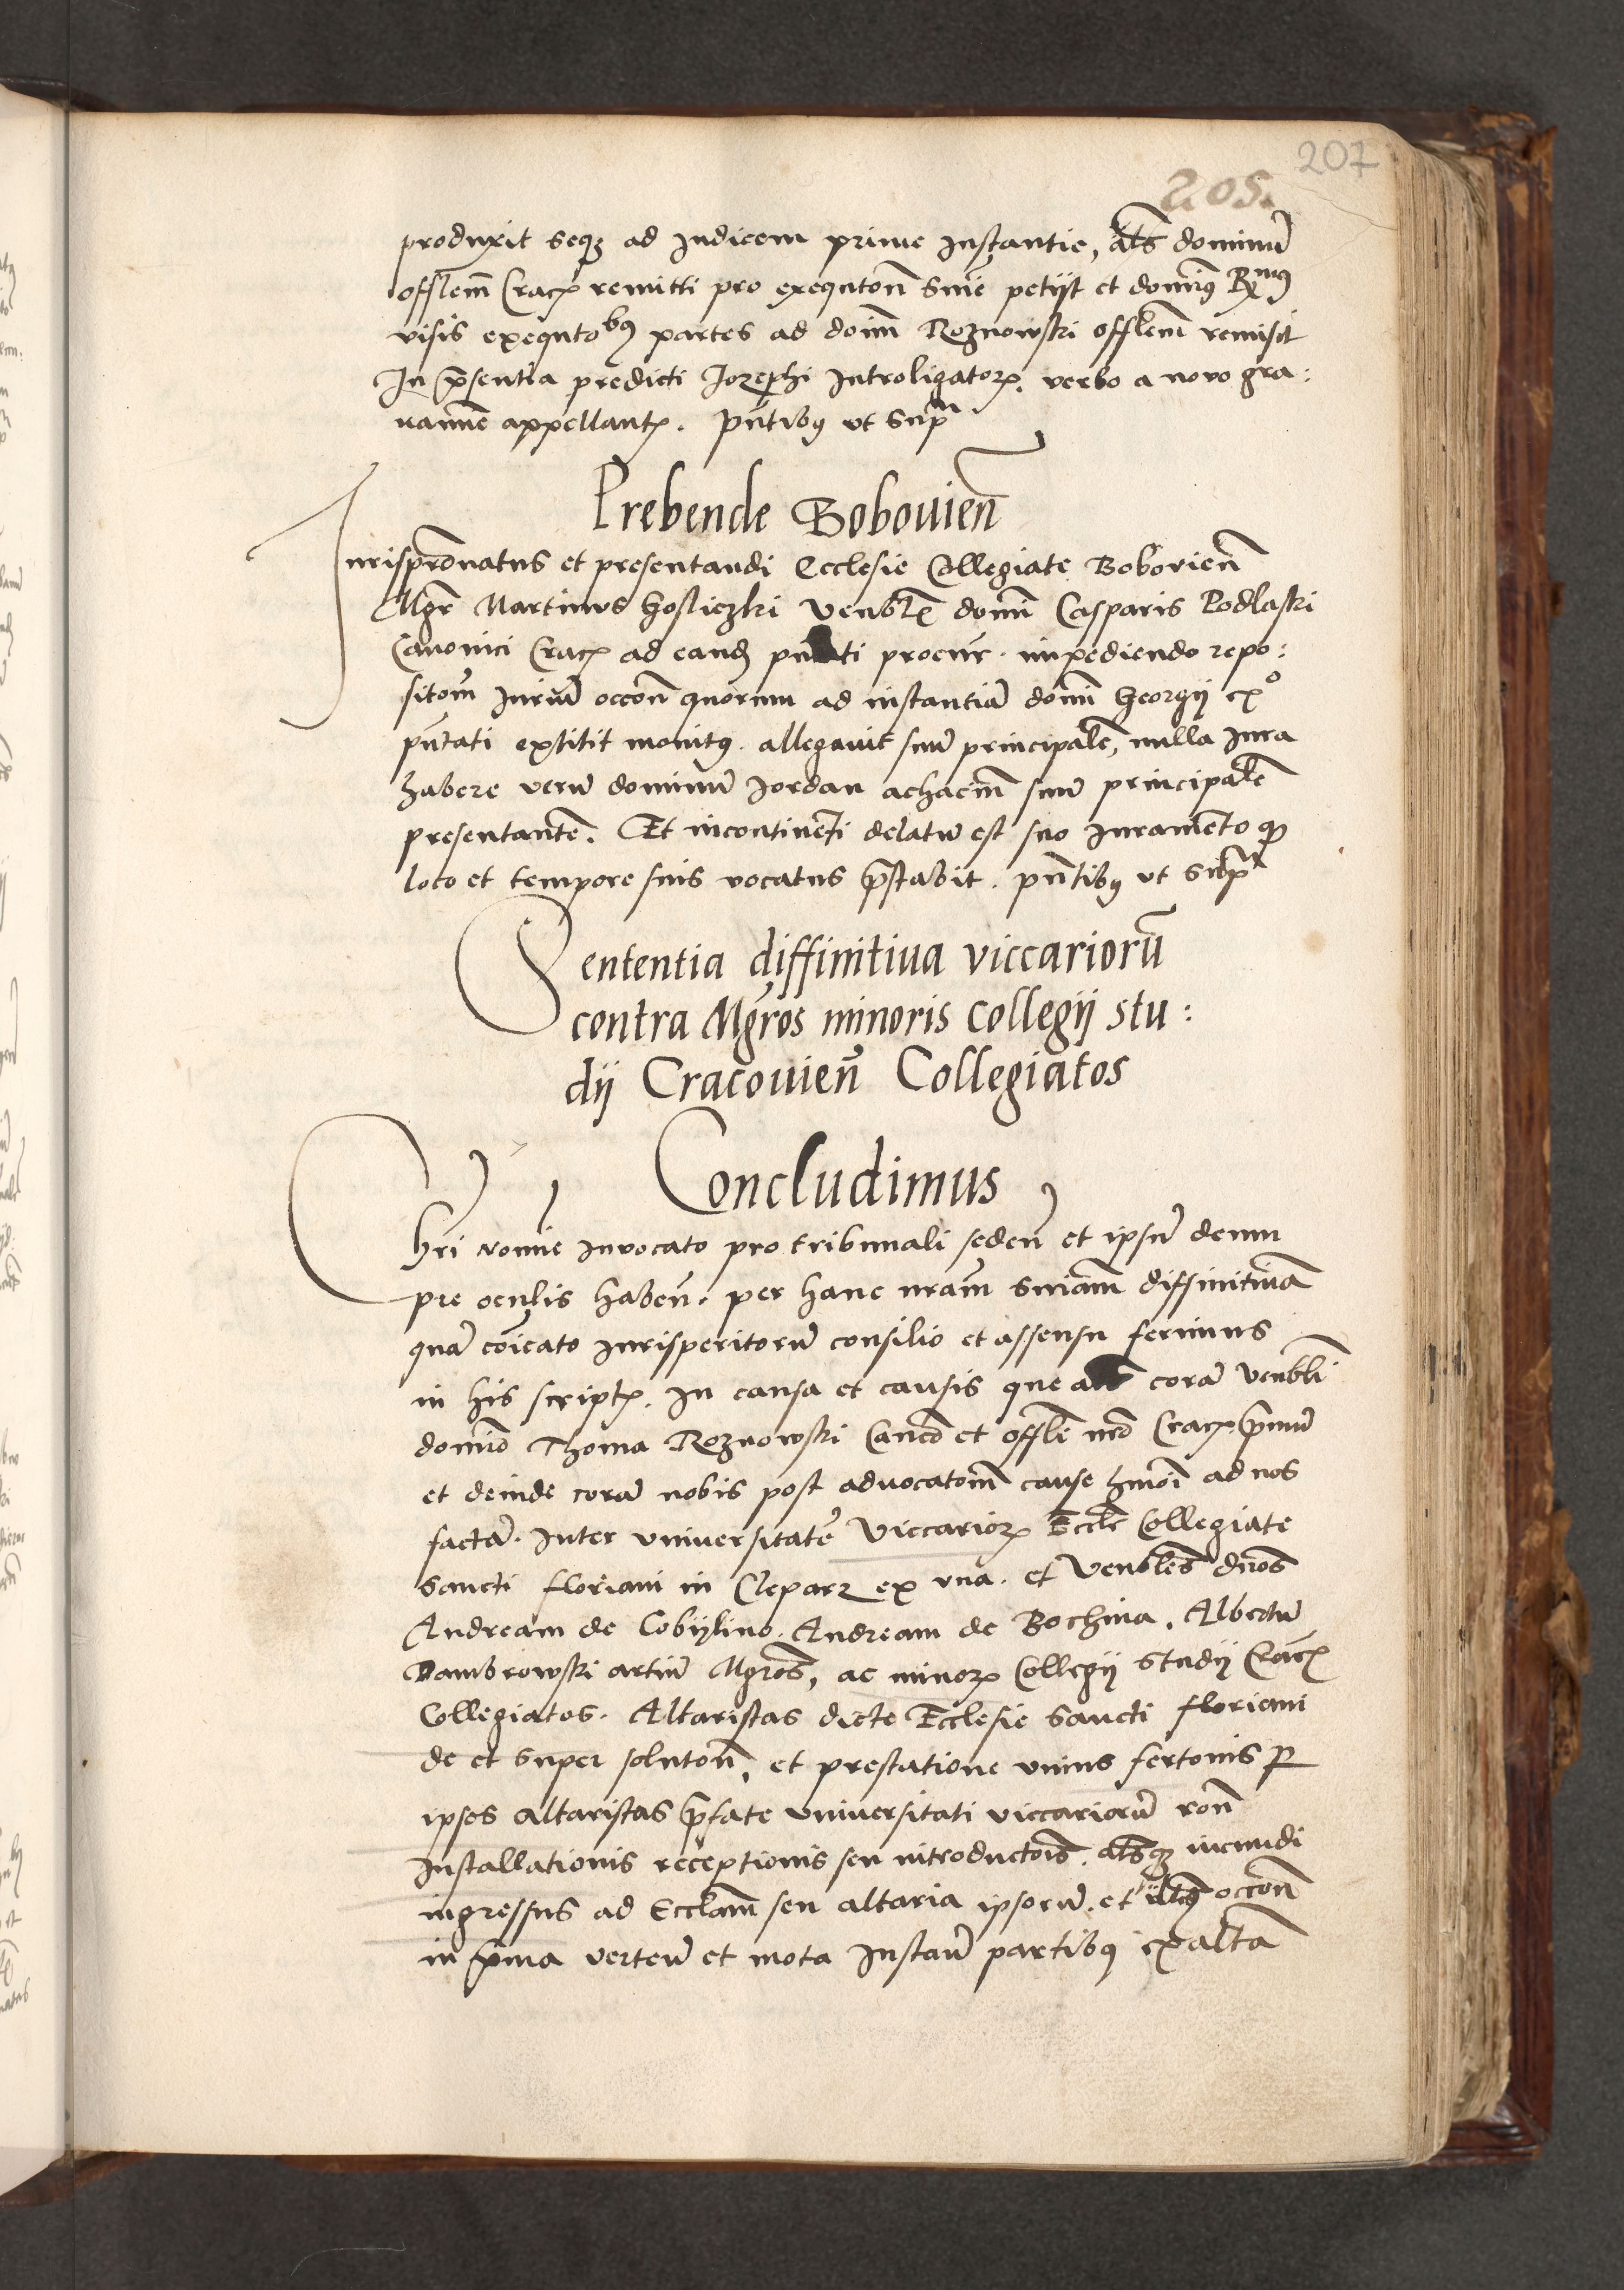 207
205.
produxit seqꝫ ad Judicem prime Instantie, al̄s dominū
offlem̄ Crac̄ꝭ remitti pro exequtōn Snīe petijt et domin9 Rmus
visis exequtōb9 partes ad dom̄ Roznowski offlem̄ remisit
In p̄sentia predicti Jozephi Introligatorꝭ, verbo a novo gra:
uamīe appellantꝭ. Pn̄tib9 vt Supra
Prebende Bobouien̄
Jurispr̄onatus et presentandi Ecclesie Collegiate Bobovien̄
Mgr̄ Martinus Gosliczki venbl̄ꝭ domī Casparis Podlaski
Canonici Cracꝭ ad eandꝫ pn̄tati procur̄. impediendo repo:
sitōm Jurium occōn quorum ad instantiā domī Georgij exº
pn̄tati extitit monit9. allegavit suū principalē, nulla Jura
habere verū dominū Jordan achacīn suū principalē
presentantē. Et incontinēti delatū est suo Juramento qꝫ
loco et tempore suis vocatus p̄stabit. pn̄tib9 vt Supra
Sententia diffinitiua viccariorū
contra Mgr̄os minoris Collegij stu:
dij Cracouien̄ Collegiatos
Concludimus
Chrī nomīe Invocato pro tribunali seden̄ et ipsū deum
pre oculis haben̄. per hanc nrām Snīam diffinitiuā
quā cōicato Jurisperitorū consilio et assensu ferimus
in his scriptꝭ. In causa et causis que corā venbli
domīo Thoma Roznowski Canc̄o et offlī nr̄o Cracꝭ p̄mū
et deinde corā nobis post advocatōm cause hmōi ad nos
factā. Inter vniversitatē Viccariorꝭ Eccle Collegiate
Sancti floriani in Cleparz ex vna. et Venbles dn̄os
Andream de Cobijlino. Andream de Bochnia, Albertū
Dambrowski artiū Mgr̄os, ac minorꝭ Collegij Studij Crac̄ꝭ
Collegiatos. Altaristas dicte Ecclesie Sancti floriani
de et super solutōn, et prestatione vnius fertonis ꝑ
ipsos altaristas p̄fate vniversitati viccariorū rōn
Installationis receptionis seu introductōis. al̄sqꝫ iucundi
ingressus ad Ecclām seu altaria ipsorū. et occōn
in p̄ma verteñ et mota Instañ partib9 ex altā